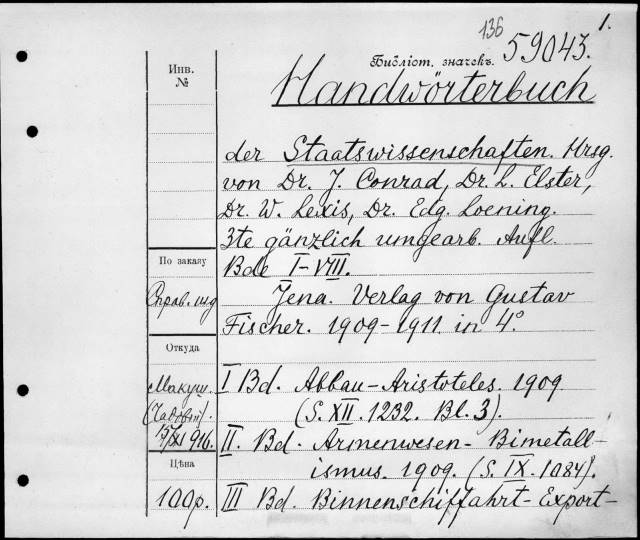 136
1.
Библіот. значекъ. 59043.
Handwörterbuch
Инв.
№
der Staatswissenschaften. Hrsg.
von Dr. J. Conrad, Dr. L. Elster,
Dr. W. Lexis, Dr. Edg. Loening.
3te gänzlich umgearb. Aufl.
Bde I-VIII.
По заказу
Справ.
Jena. Verlag von Gustav
Fischer. 1909-1911. in 4°.
Откуда
Макуш.
I Bd. Abbau-Aristoteles. 1909
(S. XII. 1232. Bl. 3).
1916.
II. Bd. Armenwesen - Bimetall-
ismus. 1909. (S. IX. 1084).
Цѣна
100р.
III Bd. Binnenschiffahrt - Export-